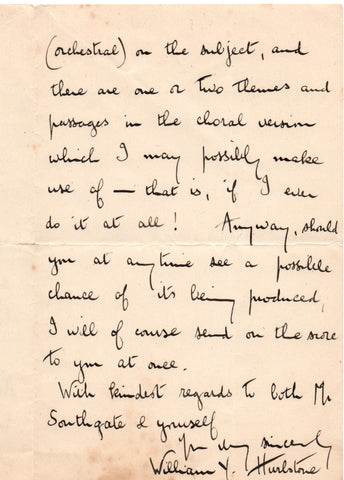 (orchestral) on the subject, and
there are one or two themes and
passages in the choral version
which I may possibly make
use of — that is, if I ever
do it at all! Anyway, should
you at anytime see a possible
chance of its being produced,
I will of course send on the score
to you at once.
With kindest regards to both Mr
Southgate & yourself
Yrs very sincerely
William Y. Hurlstone